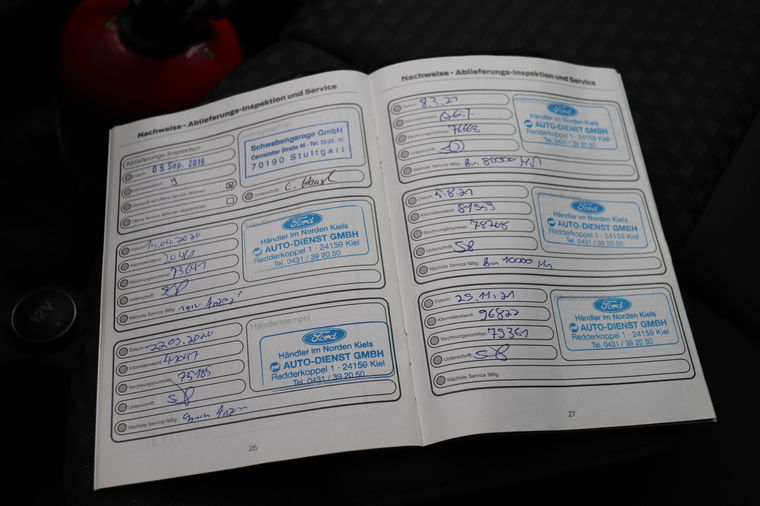 Nachweise - Ablieferungs-Inspektion und Service
Ablieferungs-Inspektion
Datum: 09. Sep. 2019
Kilometerstand: 9
Überprüft auf offene Service Aktionen
Offene Service Aktionen abgestellt
Schwabengarage GmbH
70190 Stuttgart
Unterschrift:
Datum: 14.04.2020
Kilometerstand:
Rechnungsnummer:
Unterschrift: SB
Nächste Service fällig: nach Anzeige
Ford
Händler im Norden Kiels
AUTO-DIENST GMBH
Redderkoppel 1 - 24159 Kiel
Tel. 0431 / 39 20 50
Datum: 22.09.2020
Kilometerstand:
Rechnungsnummer: 75185
Unterschrift: SB
Nächste Service fällig: nach
Händlerstempel
Ford
Händler im Norden Kiels
AUTO-DIENST GMBH
Redderkoppel 1 - 24159 Kiel
Tel. 0431 / 39 20 50
26
Nachweise - Ablieferungs-Inspektion und Service
Datum: 8.3.21
Kilometerstand:
Rechnungsnummer: 76668
Unterschrift: SB
Nächste Service fällig: 80000
Ford
Händler im Norden Kiels
AUTO-DIENST GMBH
Redderkoppel 1 - 24159 Kiel
Tel. 0431 / 39 20 50
Datum: 5.8.21
Kilometerstand:
Rechnungsnummer: 78268
Unterschrift: SB
Nächste Service fällig: 10000
Ford
Händler im Norden Kiels
AUTO-DIENST GMBH
Redderkoppel 1 - 24159 Kiel
Tel. 0431 / 39 20 50
Datum: 25.11.21
Kilometerstand: 96822
Rechnungsnummer: 79361
Unterschrift: SB
Nächste Service fällig:
Ford
Händler im Norden Kiels
AUTO-DIENST GMBH
Redderkoppel 1 - 24159 Kiel
Tel. 0431 / 39 20 50
27
12V